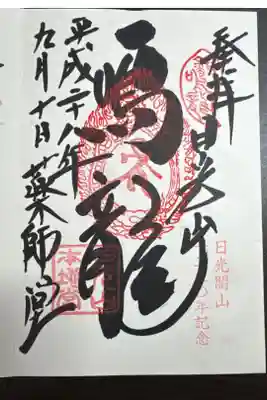 奉拝 日光山
日光開山
〇年記念
鳴龍
平成二八年
九月十日 薬師堂
本地堂